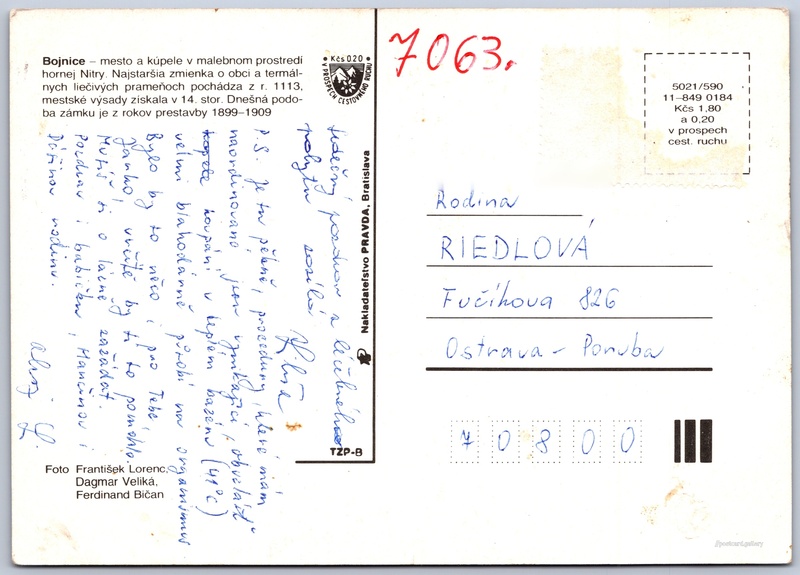 Bojnice – mesto a kúpele v malebnom prostredí
hornej Nitry. Najstaršia zmienka o obci a termál-
nych liečivých prameňoch pochádza z r. 1113,
mestské výsady získala v 14. stor. Dnešná podo-
ba zámku je z rokov prestavby 1899–1909
Kčs 0.20
V PROSPECH CESTOVNÉHO RUCHU
7063.
5021/590
11–849 0184
Kčs 1,80
a 0,20
v prospech
cest. ruchu
Srdečný pozdrav z léčebného
pobytu zasílá
P.S. Je tu pěkně, procedury, které mám
naordinováno jsou vynikající, obzvlášť
koupání v teplém bazénu (41°C)
velmi blahodárně působí na organismus
Bylo by to něco i pro Tebe,
Janko! určitě by ti to pomohlo.
Musíš si o lázně zažádat.
Pozdrav i babičku, Mančinou i
rodinu.
Ahoj
Nakladateľstvo PRAVDA, Bratislava
TZP-B
Rodina
RIEDLOVÁ
Fučíkova 826
Ostrava – Poruba
7 0 8 0 0
Foto František Lorenc,
Dagmar Veliká,
Ferdinand Bičan